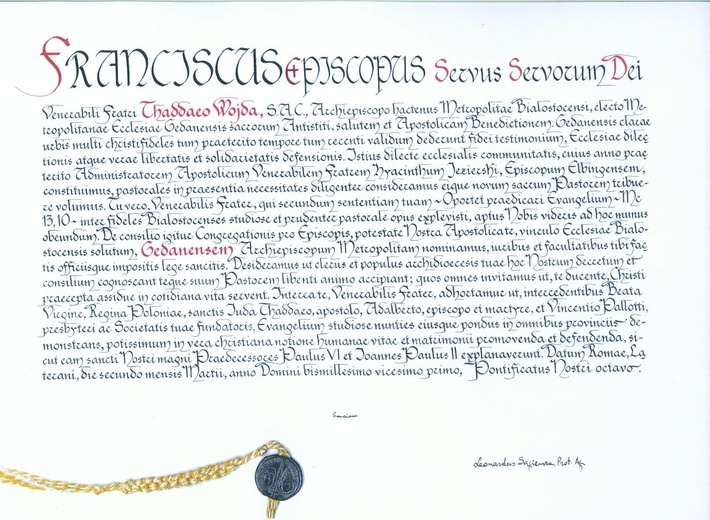 FRANCISCUS EPISCOPUS Servus Servorum Dei
Venerabili Fratri Thaddaeo Wojda, S.A.C., Archiepiscopo hactenus Metropolitae Bialostocensi, electo Me-
tropolitanae Ecclesiae Gedanensis sacrorum Antistiti, salutem et Apostolicam Benedictionem. Gedanensis clarae
urbis multi christifideles tum praeterito tempore tum recenti validum dederunt fidei testimonium, Ecclesiae dilec
tionis atque verae libertatis et solidarietatis defensionis. Istius dilecte ecclesialis communitatis, cuius anno prae
terito Administratorem Apostolicum Venerabilem Fratrem Hyacinthum Jezierski, Episcopum Elbingensem,
constituimus, pastorales in praesentia necessitates diligenter consideramus eique novum sacrum Pastorem tribue-
re volumus. Tu vero, Venerabilis Frater, qui secundum sententiam tuam ~ Oportet praedicari Evangelium ~ Mc
13,10 ~ inter fideles Bialostocenses studiose et prudenter pastorale opus explevisti, aptus Nobis videris ad hoc munus
obeundum. De consilio igitur Congregationis pro Episcopis, potestate Nostra Apostolicate, vinculo Ecclesiae Bialo-
stocensis solutum, Gedanensem Archiepiscopum Metropolitam nominamus, iuribus et facultatibus tibi fac
tis officiisque impositis lege sancitis. Desideramus ut clerus et populus archidioecesis tuae hoc Nostrum decretum et
consilium cognoscant teque suum Pastorem libenti animo accipiant; quos omnes invitamus ut, te ducente, Christi
praecepta assidue in cotidiana vita servent. Inter ate, Venerabilis Frater, adhortamur ut, intercedentibus Beata
Virgine, Regina Poloniae, sanctis Iuda Thaddaeo, apostolo, Adalberto, episcopo et martyre, et Vincentio Pallotti,
presbytero ac Societatis tuae fundatoris, Evangelium studiose nunties eiusque pondus in omnibus provinciis de-
monstrans, potissimum in vera christiana notione humanae vitae et matrimonii promovenda et defendenda, si-
cut eam sancti Nostri magni Praedecessores Paulus VI et Ioannes Paulus II explanaverunt. Datum Romae, La
terani, die secundo mensis Martii, anno Domini bismillesimo vicesimo primo, Pontificatus Nostri octavo.
Franciscus
Leonardus Sapienza, Prot. Ap.